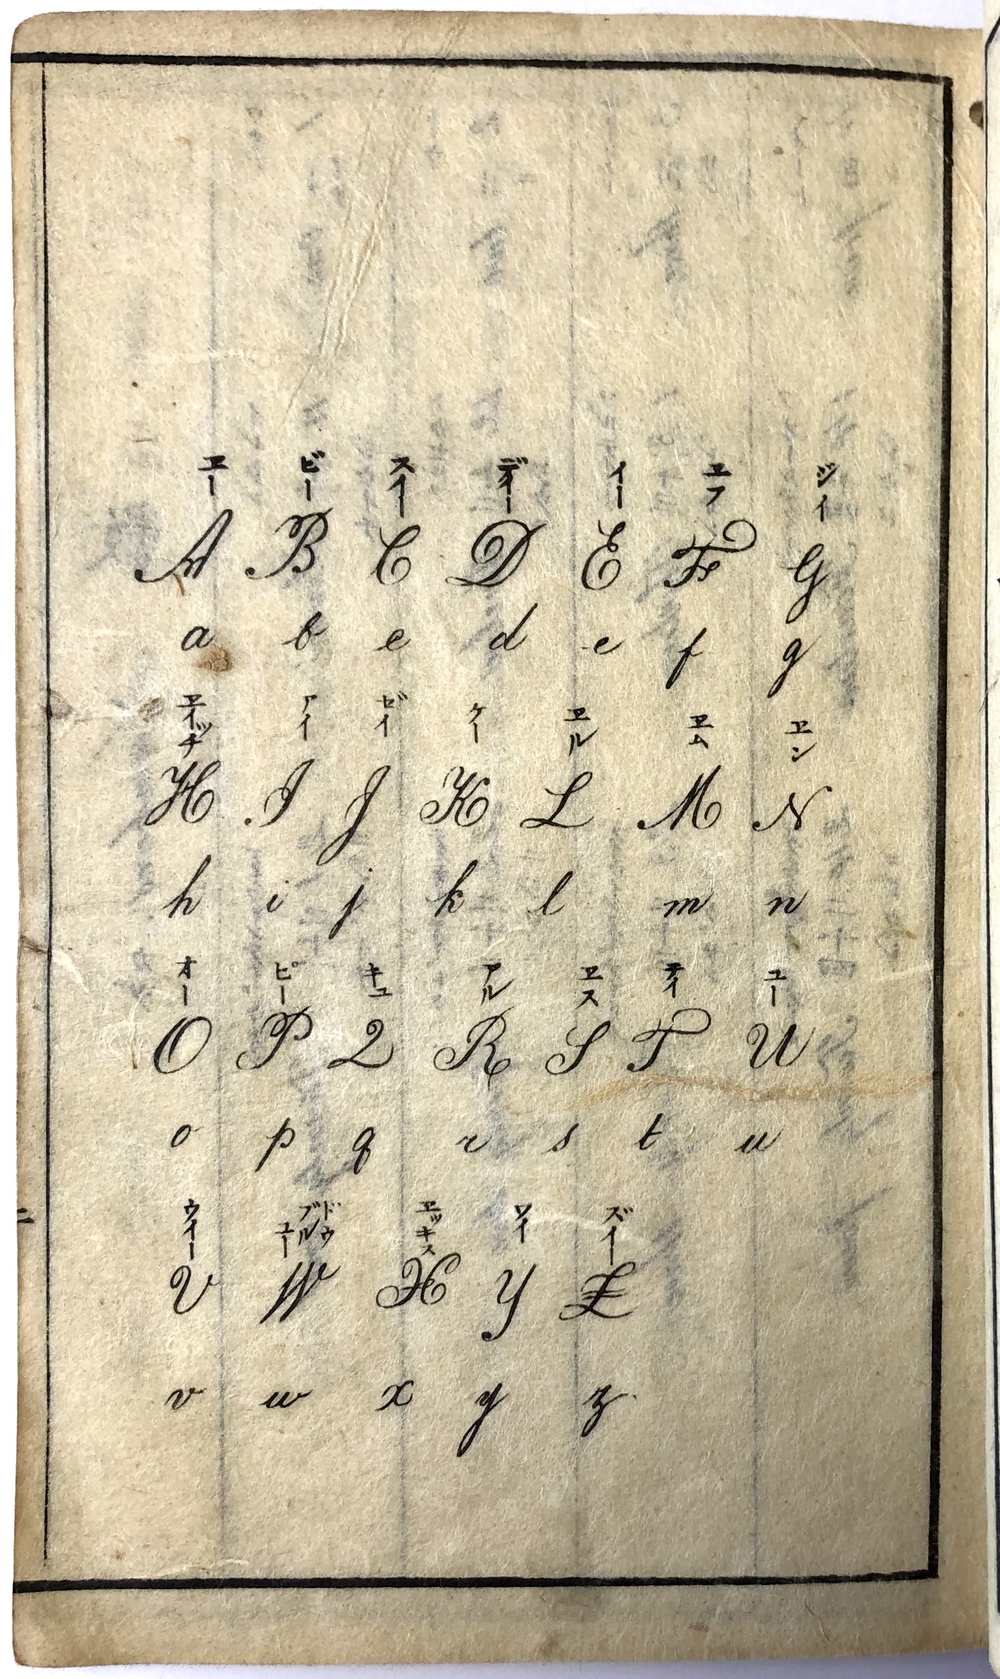 ヱー ビー スイー デイー イー ヱフ ジイ
A B C D E F G
a b c d e f g
ヱイッチ アイ ゼイ ケー ヱル ヱム ヱン
H I J K L M N
h i j k l m n
オー ピー キュ アル ヱス テイ ユー
O P Q R S T U
o p q r s t u
ウイー ドウブルユー ヱッキス ワイ ズイー
V W X Y Z
v w x y z
二